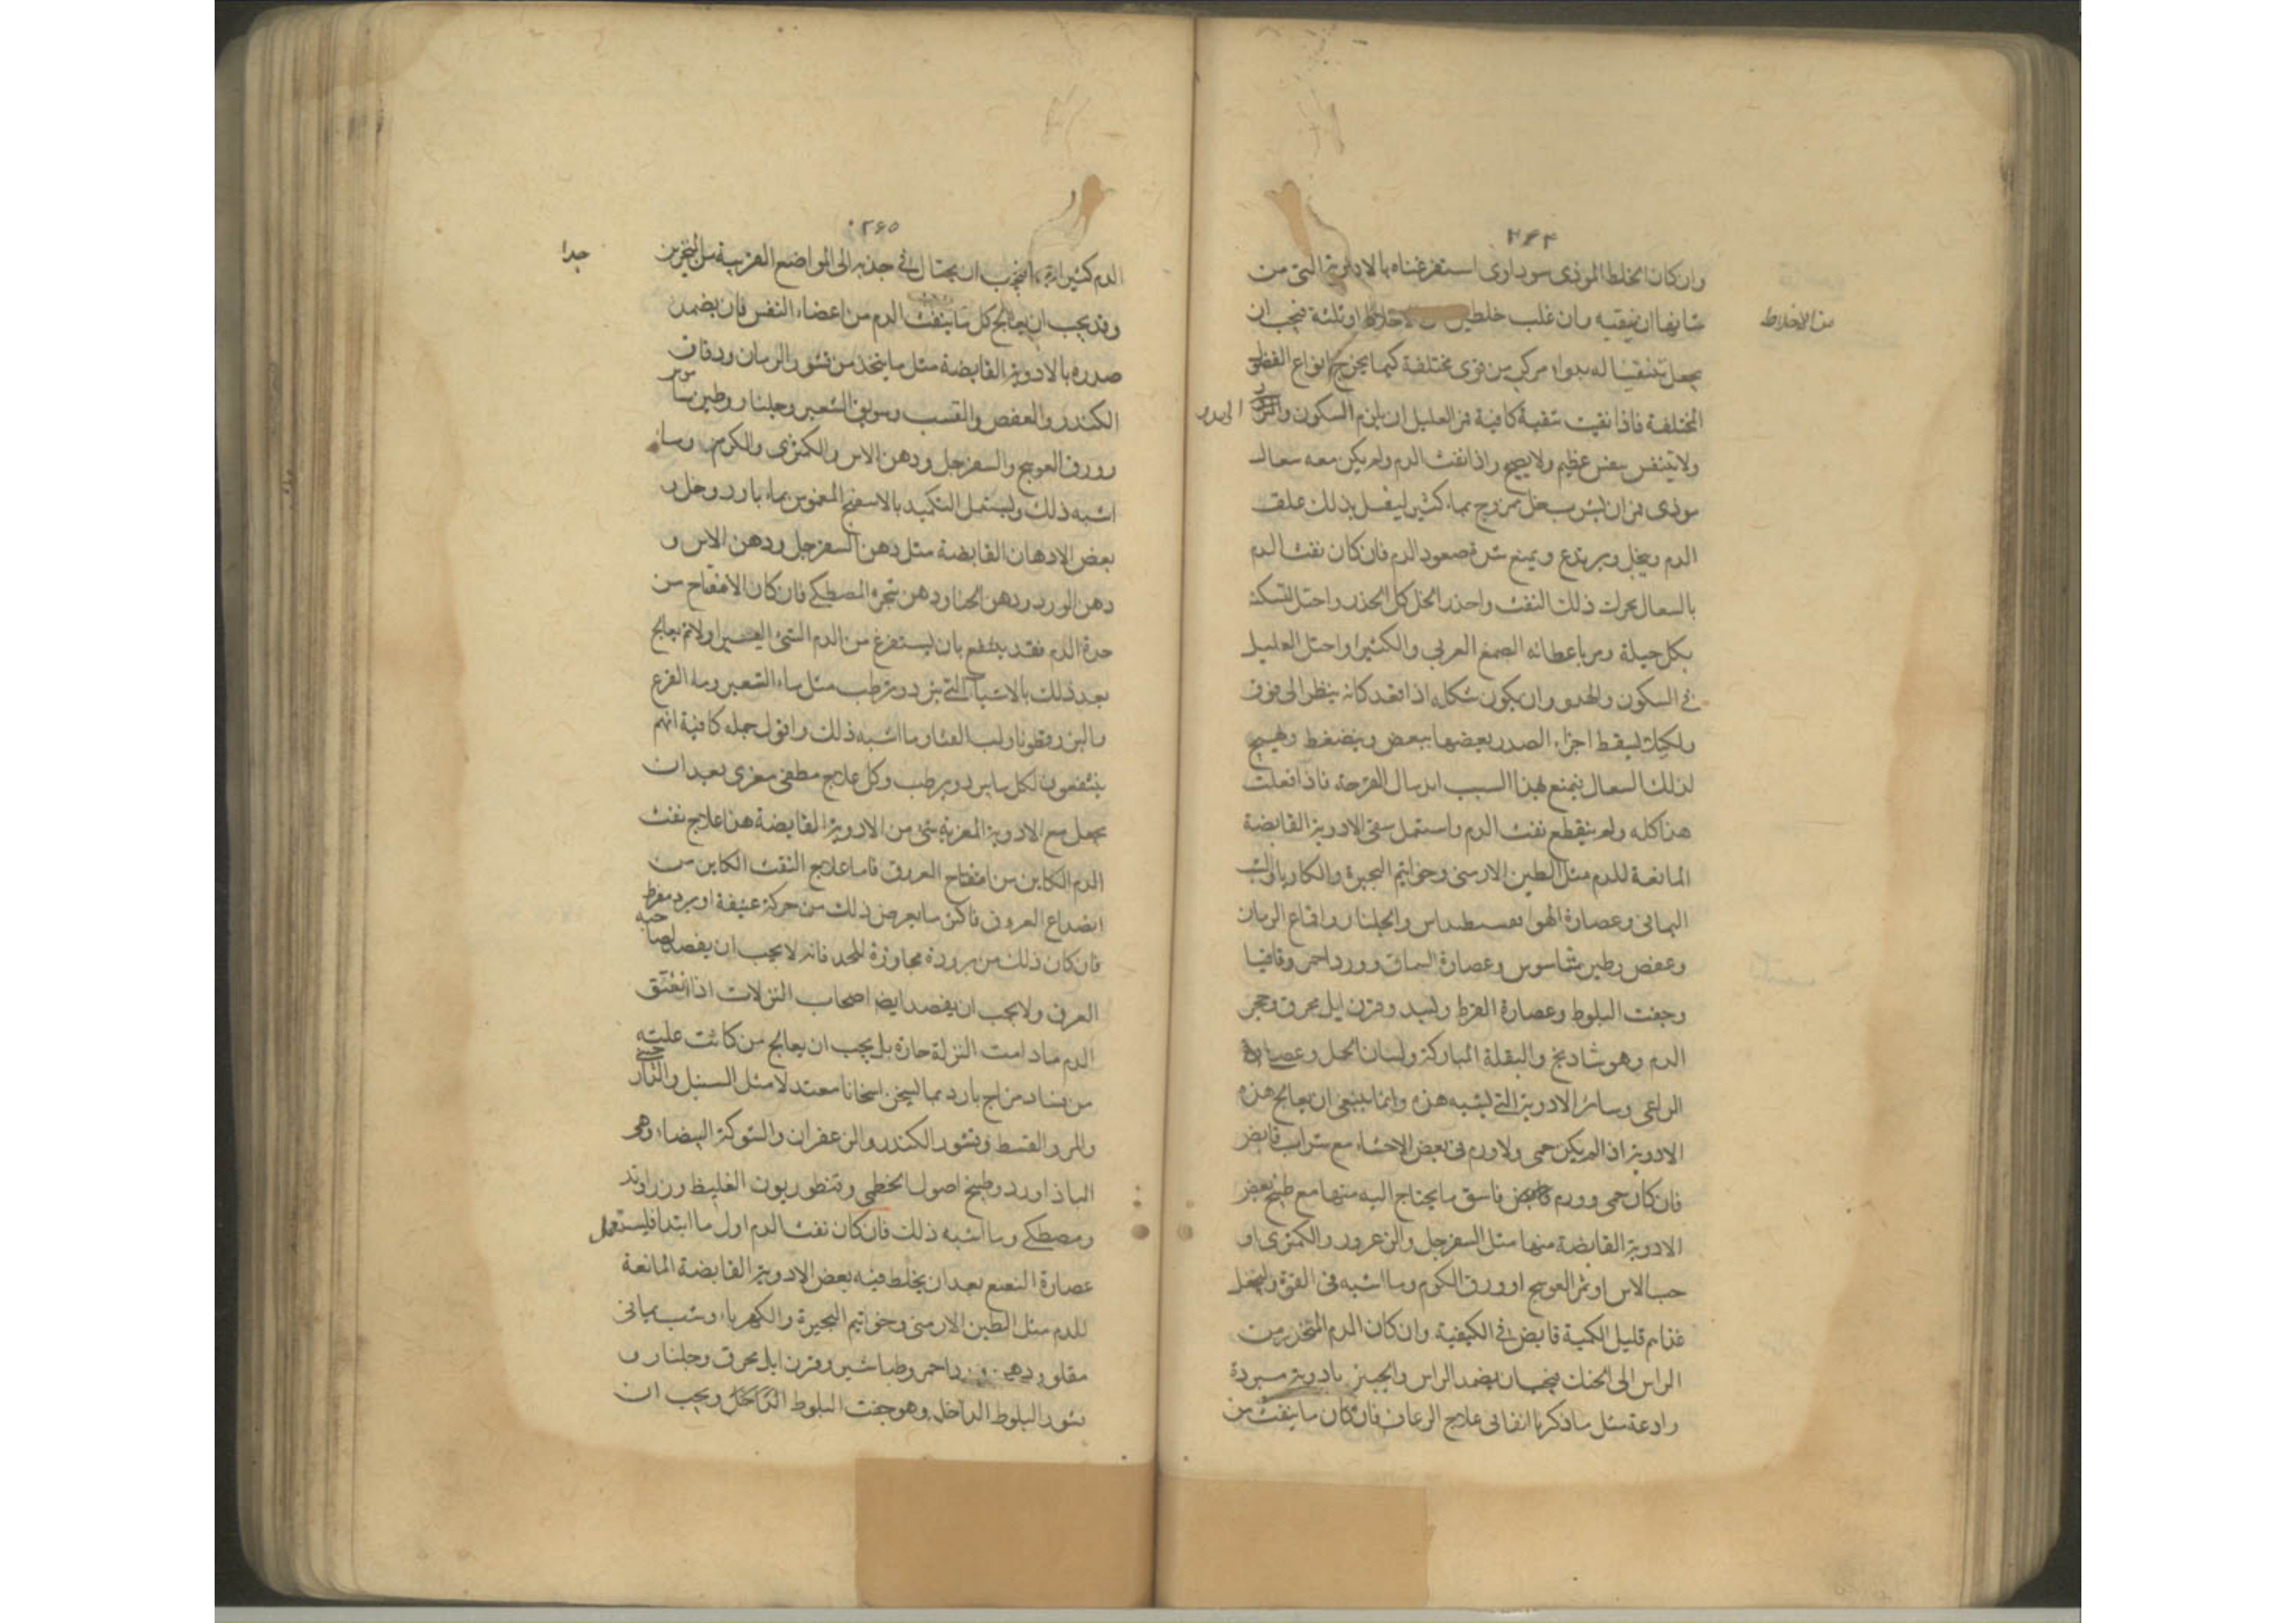 ٢٦٤
وان كان الخلط الموذى سوداوى استفرغناه بالادوية التى من
شانها ان تنقيه وان غلب خلطين الاخلاط او ثلثة فيجب ان
من الاخلاط
يجعل تنقيتنا له بدواء مركب من قوى مختلفة كيما يخرج انواع الفضل
المختلفة فاذا نقيت تنقية كافية فمر العليل ان يلزم السكون
الهدو
ولا يتنفس بنفس عظيم ولا يصيح واذا نفث الدم ولم يكن معه سعال
موذى فمر ان يشرب خل ممزوج بماء كثير ليغسل بذلك علق
الدم وينحل ويرتدع ويمنع شدة صعود الدم فان كان نفث الدم
بالسعال يحرك ذلك النفث واحذر الخل كل الحذر واحتل لتسكنه
بكل حيلة ومر باعطائه الصمغ العربي والكثيرا واحتل العليل
في السكون والهدو وان يكون شكله اذا قعد كانه ينظر الى فوق
ولكيلا يسقط اجزاء الصدر بعضها ببعض وينضغط ويهيج
لذلك السعال فيمنع لهذا السبب اندمال القرحة فاذا فعلت
هذا كله ولم ينقطع نفث الدم واستعمل سقى الادوية القابضة
المانعة للدم مثل الطين الارمنى وخواتيم البحيرة والكاربا والشب
اليمانى وعصارة الهوافسطيداس والجلنار واقماع الرمان
وعفص وطين شاموس وعصارة السماق وورد احمر وقاقيا
وجفت البلوط وعصارة القرظ ولبيد وقرن ايل محرق وحجر
الدم وهو شاذنج والبقلة المباركة ولسان الحمل وعصارة
الراعى وسائر الادوية التى تشبه هذه وانما ينبغى ان يعالج هذه
الادوية اذا لم يكن حمى ولا ورم فى بعض الاحشاء مع شراب قابض
فان كان حمى وورم فاسق ما يحتاج اليه منها مع طبيخ بعض
الادوية القابضة منها مثل السفرجل والزعرور والكمثرى او
حب الاس او ثمر العوسج او ورق الكرم وما اشبه فى القوة وليجعل
غذاهم قليل الكمية قابض في الكيفية وان كان الدم المنحدر من
الراس الى الحنك فيجب ان يضمد الراس والجبين بادوية مبردة
رادعة مثل ما ذكرنا انفا فى علاج الرعاف فان كان ما ينفث من
٢٦٥
الدم كثيرا فيجب ان يحتال في جذبه الى المواضع القريبة مثل المنخرين
جدا
وقد يجب ان يعالج كل ما ينفث الدم من اعضاء النفس فان يضمد
صدره بالادوية القابضة مثل ما يتخذ من قشور الرمان ودقاق
الكندر والعفص والقسب وسويق الشعير وجلنار وطين ساموس
وورق العوسج والسفرجل ودهن الاس والكمثرى والكرم وما
اشبه ذلك وليستعمل التكميد بالاسفنج المغموس بماء بارد وخل و
بعض الادهان القابضة مثل دهن السفرجل ودهن الاس و
دهن الورد ودهن الحنا ودهن شجرة المصطكى فان كان الانفتاح من
حدة الدم فقد ينتفع بان يستفرغ من الدم الشئ اليسير اولا ثم يعالج
بعد ذلك بالاشياء التى تبرد وترطب مثل ماء الشعير وماء القرع
والبزرقطونا ولب القثا وما اشبه ذلك واقول جملة كافية انهم
ينتفعون لكل ما يبرد ويرطب وكل علاج مطفى مغرى بعد ان
يجعل مع الادوية المغرية شئ من الادوية القابضة هذا علاج نفث
الدم الكاين من انفتاح العروق فاما علاج النفث الكاين من
انصداع العروق فاكثر ما يعرض ذلك من حركة عنيفة او برد مفرط
فان كان ذلك من برودة مجاوزة للحد فانه لا يجب ان يفصد لصاحبه
العرق ولا يجب ان يفصد ايضا اصحاب النزلات اذا
الدم ما دامت النزلة حارة بل يجب ان يعالج من كانت علته
من فساد مزاج بارد مما يسخن اسخانا معتدلا مثل السنبل
والمر والقسط وقشور الكندر والزعفران والشوكة البيضاء وهى
الباذاورد وطبيخ اصول الخطمى وقنطوريون الغليظ وزراوند
ومصطكى وما اشبه ذلك فان كان نفث الدم اول ما ابتدا فليستعمل
عصارة النعنع بعد ان يخلط فيه بعض الادوية القابضة المانعة
للدم مثل الطين الارمنى وخواتيم البحيرة والكهربا وشب يمانى
مقلو احمر وطباشير وقرن ايل محرق وجلنار و
قشور البلوط الداخل وهو جفت البلوط الداخل ويجب ان